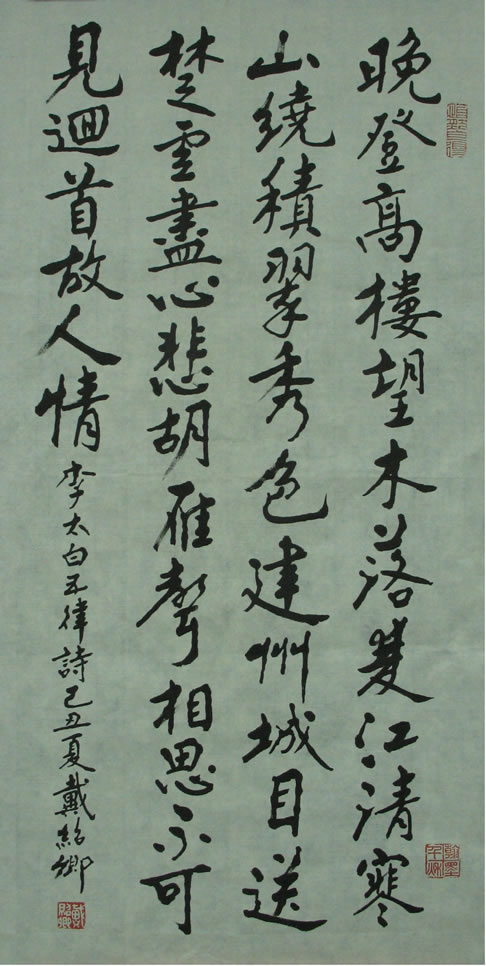 晚登高樓望木落雙江清寒
山繞積翠秀色建州城目送
楚雲盡心悲胡雁聲相思不可
見迴首故人情 李太白五律詩己丑夏戴紹卿